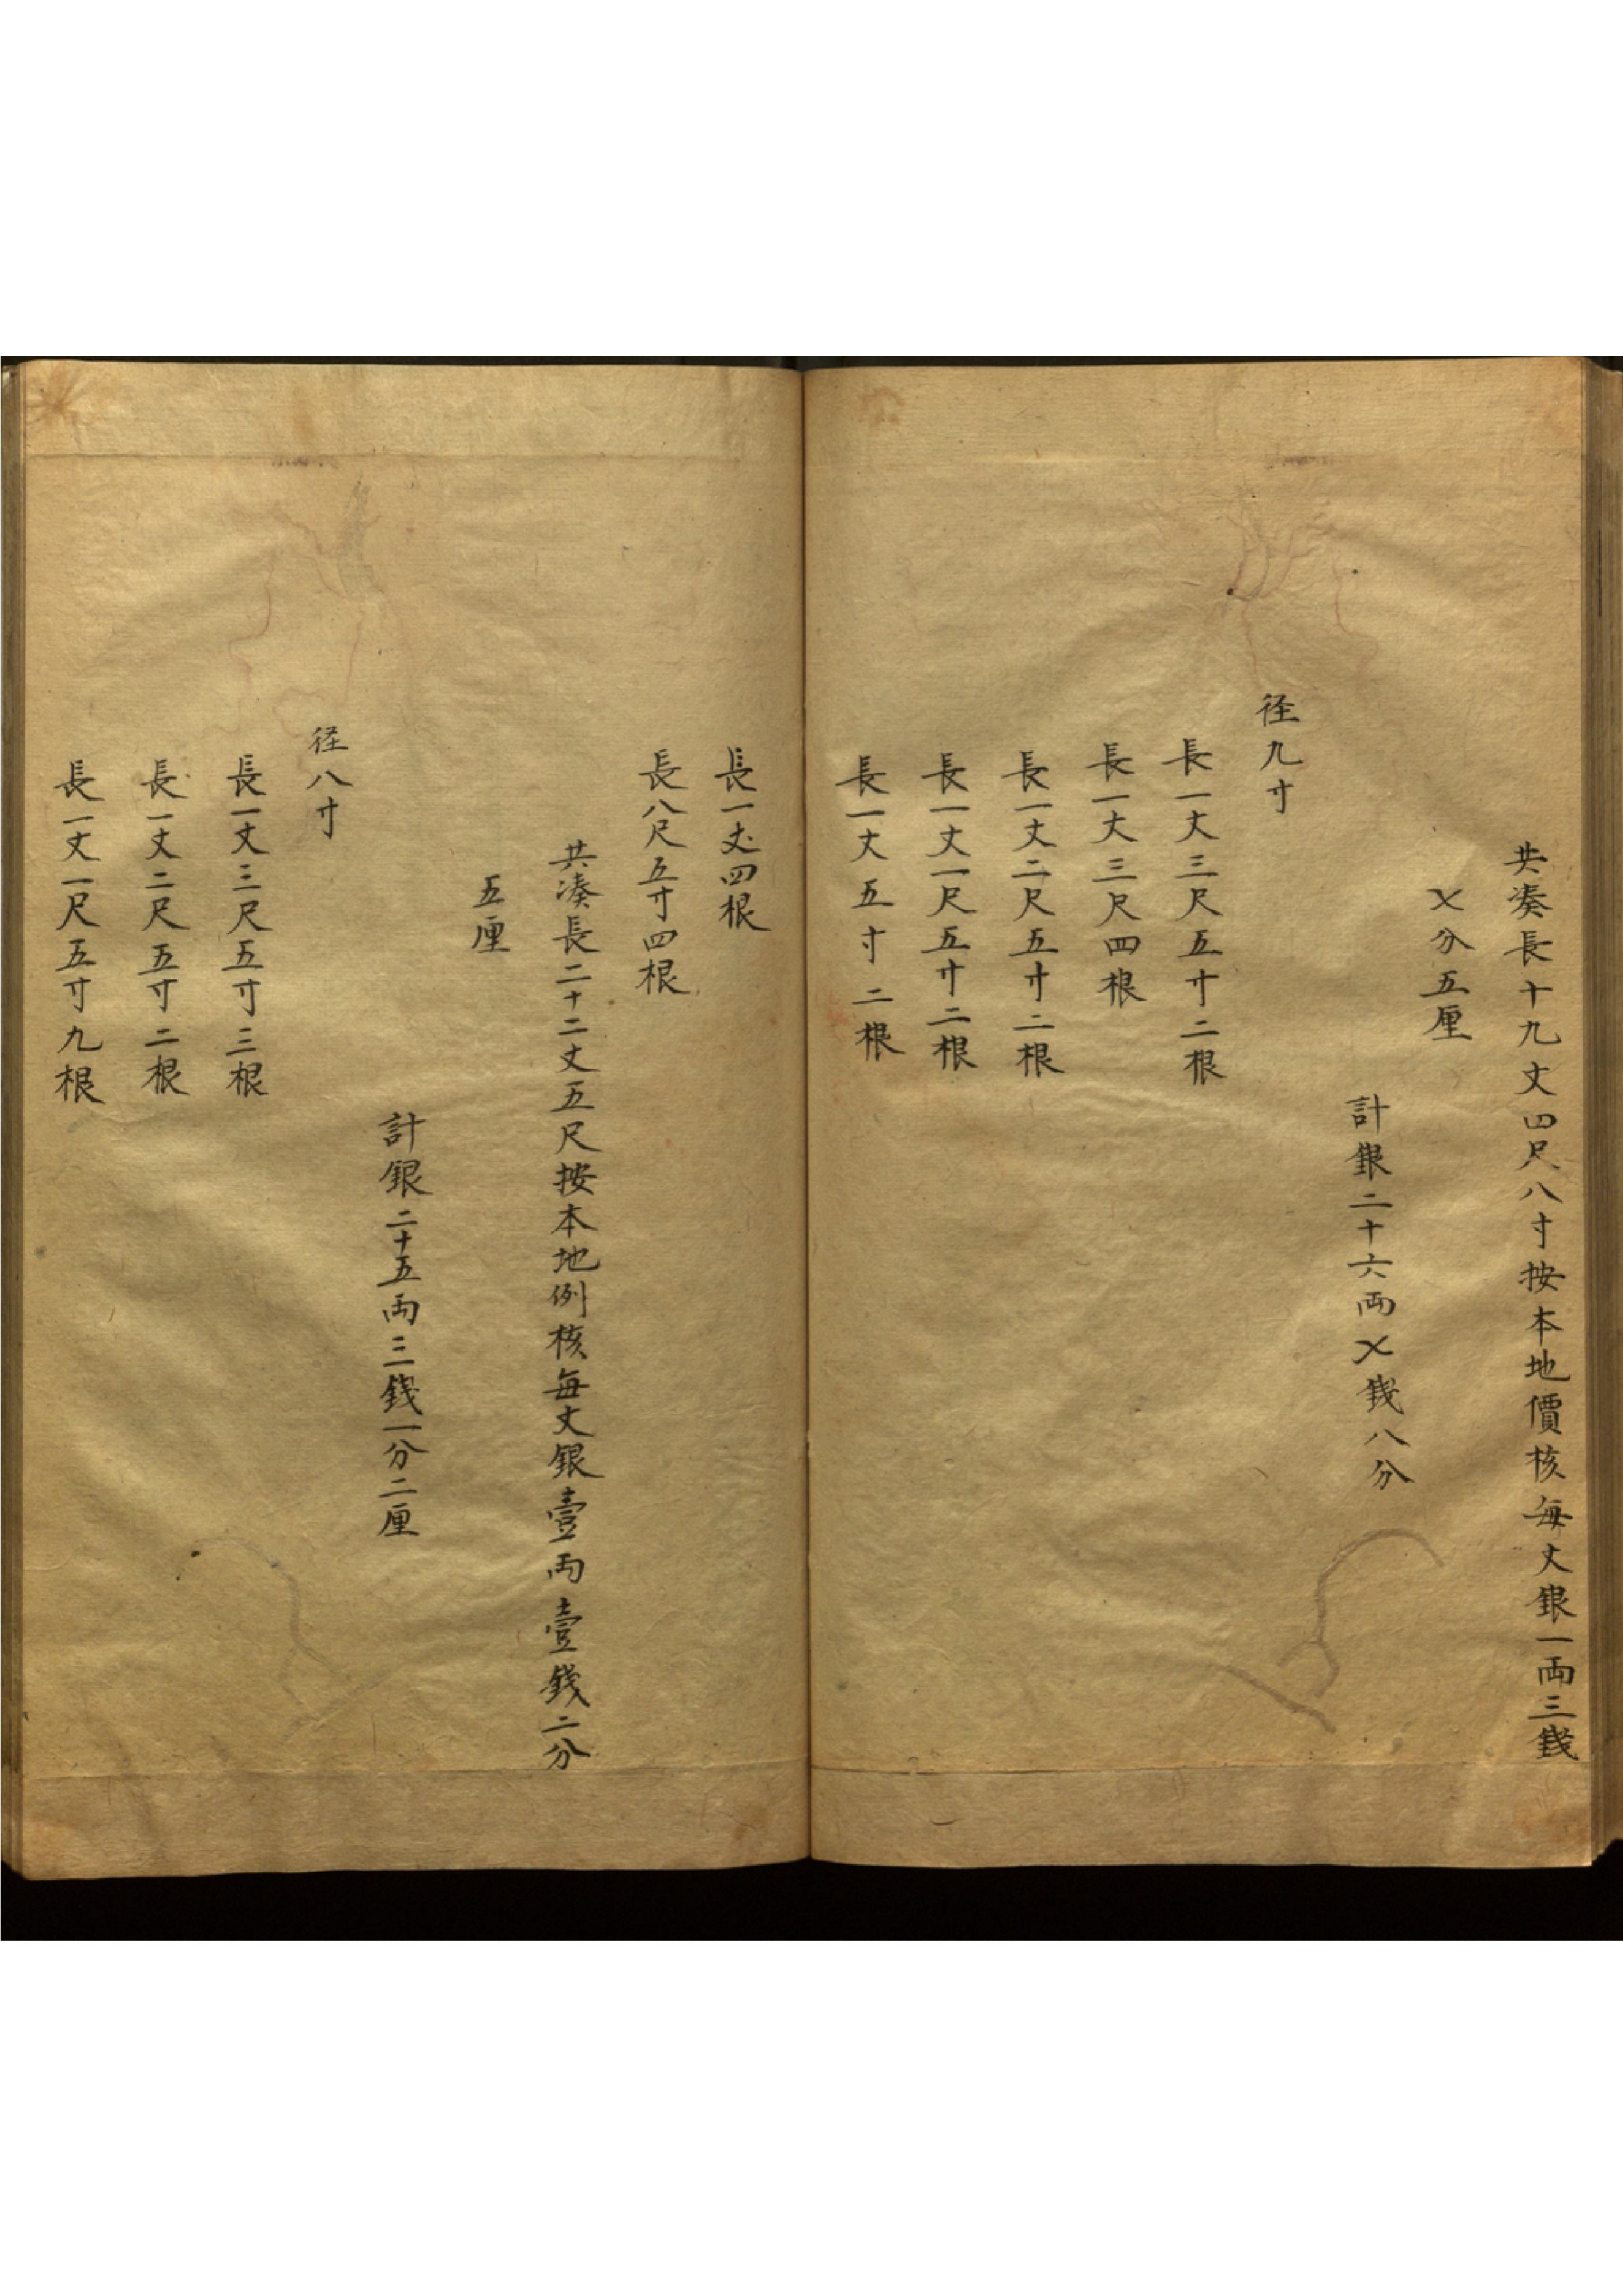 共凑長十九丈四尺八寸按本地價核每丈銀一両三錢
乂分五厘
計銀二十六両乂錢八分
径九寸
長一丈三尺五寸二根
長一丈三尺四根
長一丈二尺五寸二根
長一丈一尺五寸二根
長一丈五寸二根
長一丈四根
長八尺五寸四根
共凑長二十二丈五尺按本地例核每丈銀壹両壹錢二分
五厘
計銀二十五両三錢一分二厘
径八寸
長一丈三尺五寸三根
長一丈二尺五寸二根
長一丈一尺五寸九根